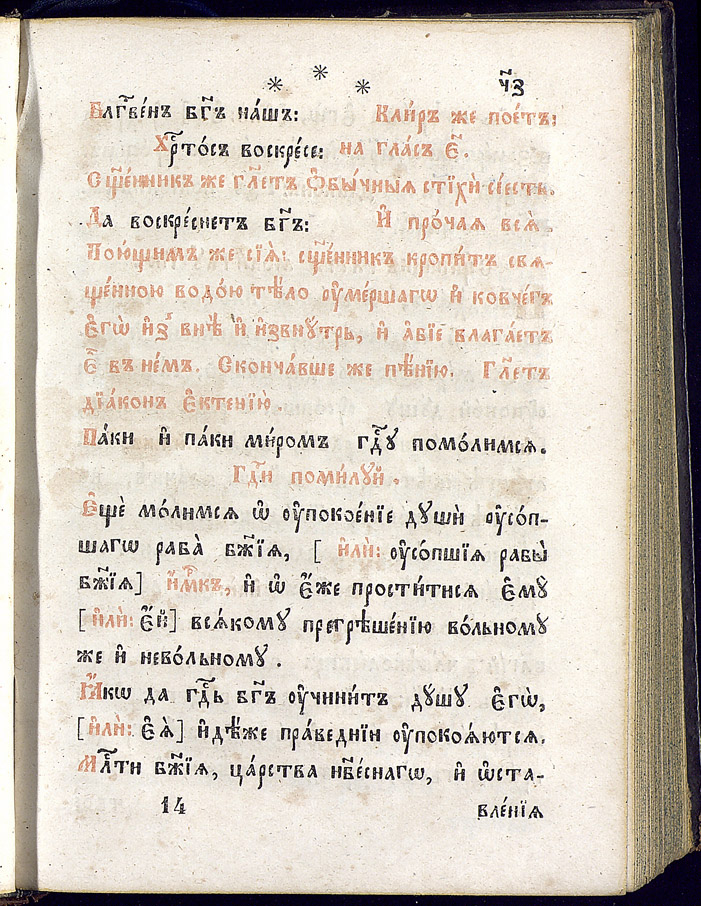 * * * ч҃з
Блгⷭ҇ве́нъ бг҃ъ на́шъ: Кли́ръ же пое́тъ:
Хрⷭ҇то́съ воскре́се: на гла́съ є҃.
Сщ҃е́нникъ же гл҃етъ ѻ҆бы́чныѧ стїхѝ сі́есть.
Да воскре́снетъ бг҃ъ: И҆ про́чаѧ всѧ̑.
Пою́щымъ же сїѧ̑: сщ҃е́нникъ кропи́тъ свѧ-
ще́нною водо́ю тѣ́ло ᲂу҆ме́ршагѡ и҆ ковче́гъ
є҆гѡ̀ и҆з̾ внѣ̀ и҆ и҆звнꙋ́трь, и҆ а҆́бїе влага́етъ
є҆̀ въ не́мъ. Сконча́вше же пѣ́нїю. Гл҃етъ
дїа́конъ є҆ктенїю̀.
Па́ки и҆ па́ки ми́ромъ гдⷭ҇ꙋ помо́лимсѧ.
Гдⷭ҇и поми́лꙋй.
Є҆щѐ мо́лимсѧ ѡ҆ ᲂу҆покое́нїе дꙋшѝ ᲂу҆со́п-
шагѡ раба̀ бж҃їѧ, [ и҆лѝ: ᲂу҆со́пшїѧ рабы̀
бж҃їѧ] и҆́мⷬ҇къ, и҆ ѡ҆ є҆́же прости́тисѧ є҆мꙋ̀
[и҆лѝ: є҆́й] всѧ́комꙋ прегрѣше́нїю во́льномꙋ
же и҆ нево́льномꙋ.
Ꙗ҆́кѡ да гдⷭ҇ь бг҃ъ ᲂу҆чини́тъ дꙋ́шꙋ є҆гѡ̀,
[и҆лѝ: є҆ѧ̀] и҆дѣ́же пра́веднїи ᲂу҆покоѧ́ютсѧ.
Млⷭ҇ти бж҃їѧ, ца́рства нбⷭ҇снагѡ, и҆ ѡ҆ста-
14 вле́нїѧ